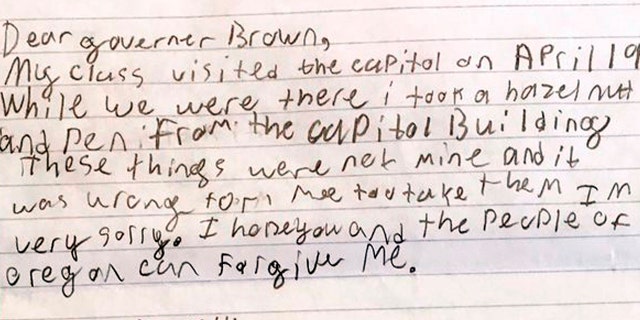 Dear governer Brown,
My class visited the capitol on April 19
While we were there i took a hazel nut
and pen from the capitol Building
these things were not mine and it
was wrong form me to take them I'm
very sorry. I hope you and the people of
oregon can forgive me.